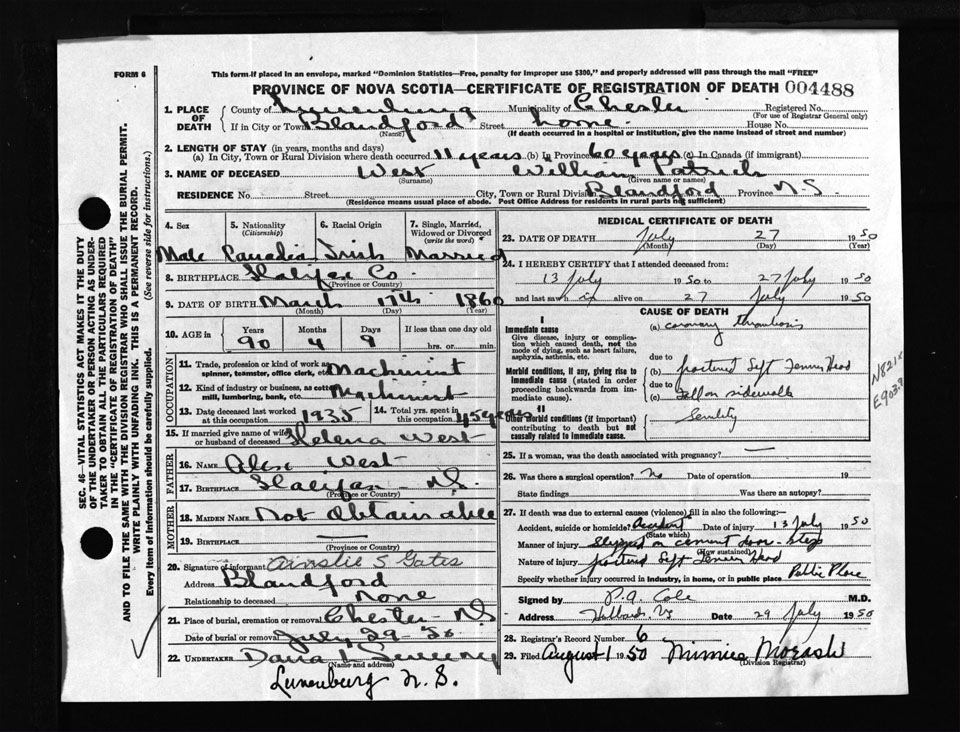 FORM 6
This form if placed in an envelope, marked "Dominion Statistics—Free, penalty for improper use $300," and properly addressed will pass through the mail "FREE"
PROVINCE OF NOVA SCOTIA—CERTIFICATE OF REGISTRATION OF DEATH 004488
SEC. 46—VITAL STATISTICS ACT MAKES IT THE DUTY
OF THE UNDERTAKER OR PERSON ACTING AS UNDER-
TAKER TO OBTAIN ALL THE PARTICULARS REQUIRED
IN THE "CERTIFICATE OF REGISTRATION OF DEATH"
AND TO FILE THE SAME WITH THE DIVISION REGISTRAR WHO SHALL ISSUE THE BURIAL PERMIT.
WRITE PLAINLY WITH UNFADING INK. THIS IS A PERMANENT RECORD.
Every item of Information should be carefully supplied. (See reverse side for instructions.)
1. PLACE OF DEATH
County of Lunenburg Municipality of Chester Registered No.
(For use of Registrar General only)
If in City or Town Blandford Street none. House No.
(Name) (If death occurred in a hospital or institution, give the name instead of street and number)
2. LENGTH OF STAY (in years, months and days)
(a) In City, Town or Rural Division where death occurred 11 years (b) In Province 60 years (c) In Canada (if immigrant)
3. NAME OF DECEASED West William Patrick
(Surname) (Given name or names)
RESIDENCE No. Street City, Town or Rural Division Blandford Province N.S
(Residence means usual place of abode. Post Office Address for residents in rural parts not sufficient)
4. Sex 5. Nationality (Citizenship) 6. Racial Origin 7. Single, Married, Widowed or Divorced (write the word)
Male Canadia Irish Married
8. BIRTHPLACE Halifax Co
(Province or County)
9. DATE OF BIRTH March 17th 1860
(Month) (Day) (Year)
10. AGE in Years Months Days If less than one day old
90 4 9 hrs. or min.
OCCUPATION
11. Trade, profession or kind of work as spinner, teamster, office clerk, etc. Machinist
12. Kind of industry or business, as cotton mill, lumbering, bank, etc. Machinist
13. Date deceased last worked at this occupation 1935 14. Total yrs. spent in this occupation 45 years
15. If married give name of wife or husband of deceased Helena West
FATHER
16. NAME Alex West
17. BIRTHPLACE Halifax - N.S.
(Province or Country)
MOTHER
18. MAIDEN NAME Not Obtainable
19. BIRTHPLACE —
(Province or Country)
20. Signature of informant Ainslie S Gates
Address Blandford
Relationship to deceased None
21. Place of burial, cremation or removal Chester - N.S
Date of burial or removal July 29 - 50
22. UNDERTAKER Sweeny
(Name and address)
Lunenburg N.S.
MEDICAL CERTIFICATE OF DEATH
23. DATE OF DEATH July 27 1950
(Month) (Day) (Year)
24. I HEREBY CERTIFY that I attended deceased from:
13 July 1950 to 27 July 1950
and last saw alive on 27 July 1950
CAUSE OF DEATH
I
Immediate cause
Give disease, injury or complication which caused death, not the mode of dying, such as heart failure, asphyxia, asthenia, etc.
(a) coronary thrombosis
due to
Morbid conditions, if any, giving rise to immediate cause (stated in order proceeding backwards from immediate cause).
(b) fractured left femur head
due to
(c) Fell on sidewalk
N821X
II
Other morbid conditions (if important) contributing to death but not causally related to immediate cause.
Senility
25. If a woman, was the death associated with pregnancy? —
26. Was there a surgical operation? No Date of operation 19
State findings Was there an autopsy?
27. If death was due to external causes (violence) fill in also the following:—
Accident, suicide or homicide? Accident Date of injury 13 July 1950
(State which)
Manner of injury Slipped on cement door-step
(How sustained)
Nature of injury fractured left femur head
Specify whether injury occurred in industry, in home, or in public place Public Place
Signed by P.A. Cole M.D.
Address Date 29 July 1950
28. Registrar's Record Number 6
29. Filed August 1 1950 Minnie Morash
(Division Registrar)